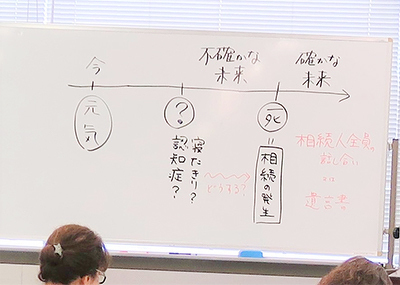 今
不確かな
未来
確かな
未来
元気
？
死
寝たきり？
認知症？
どうする？
＝
相続の発生
相続人全員
話し合い
or
遺言書